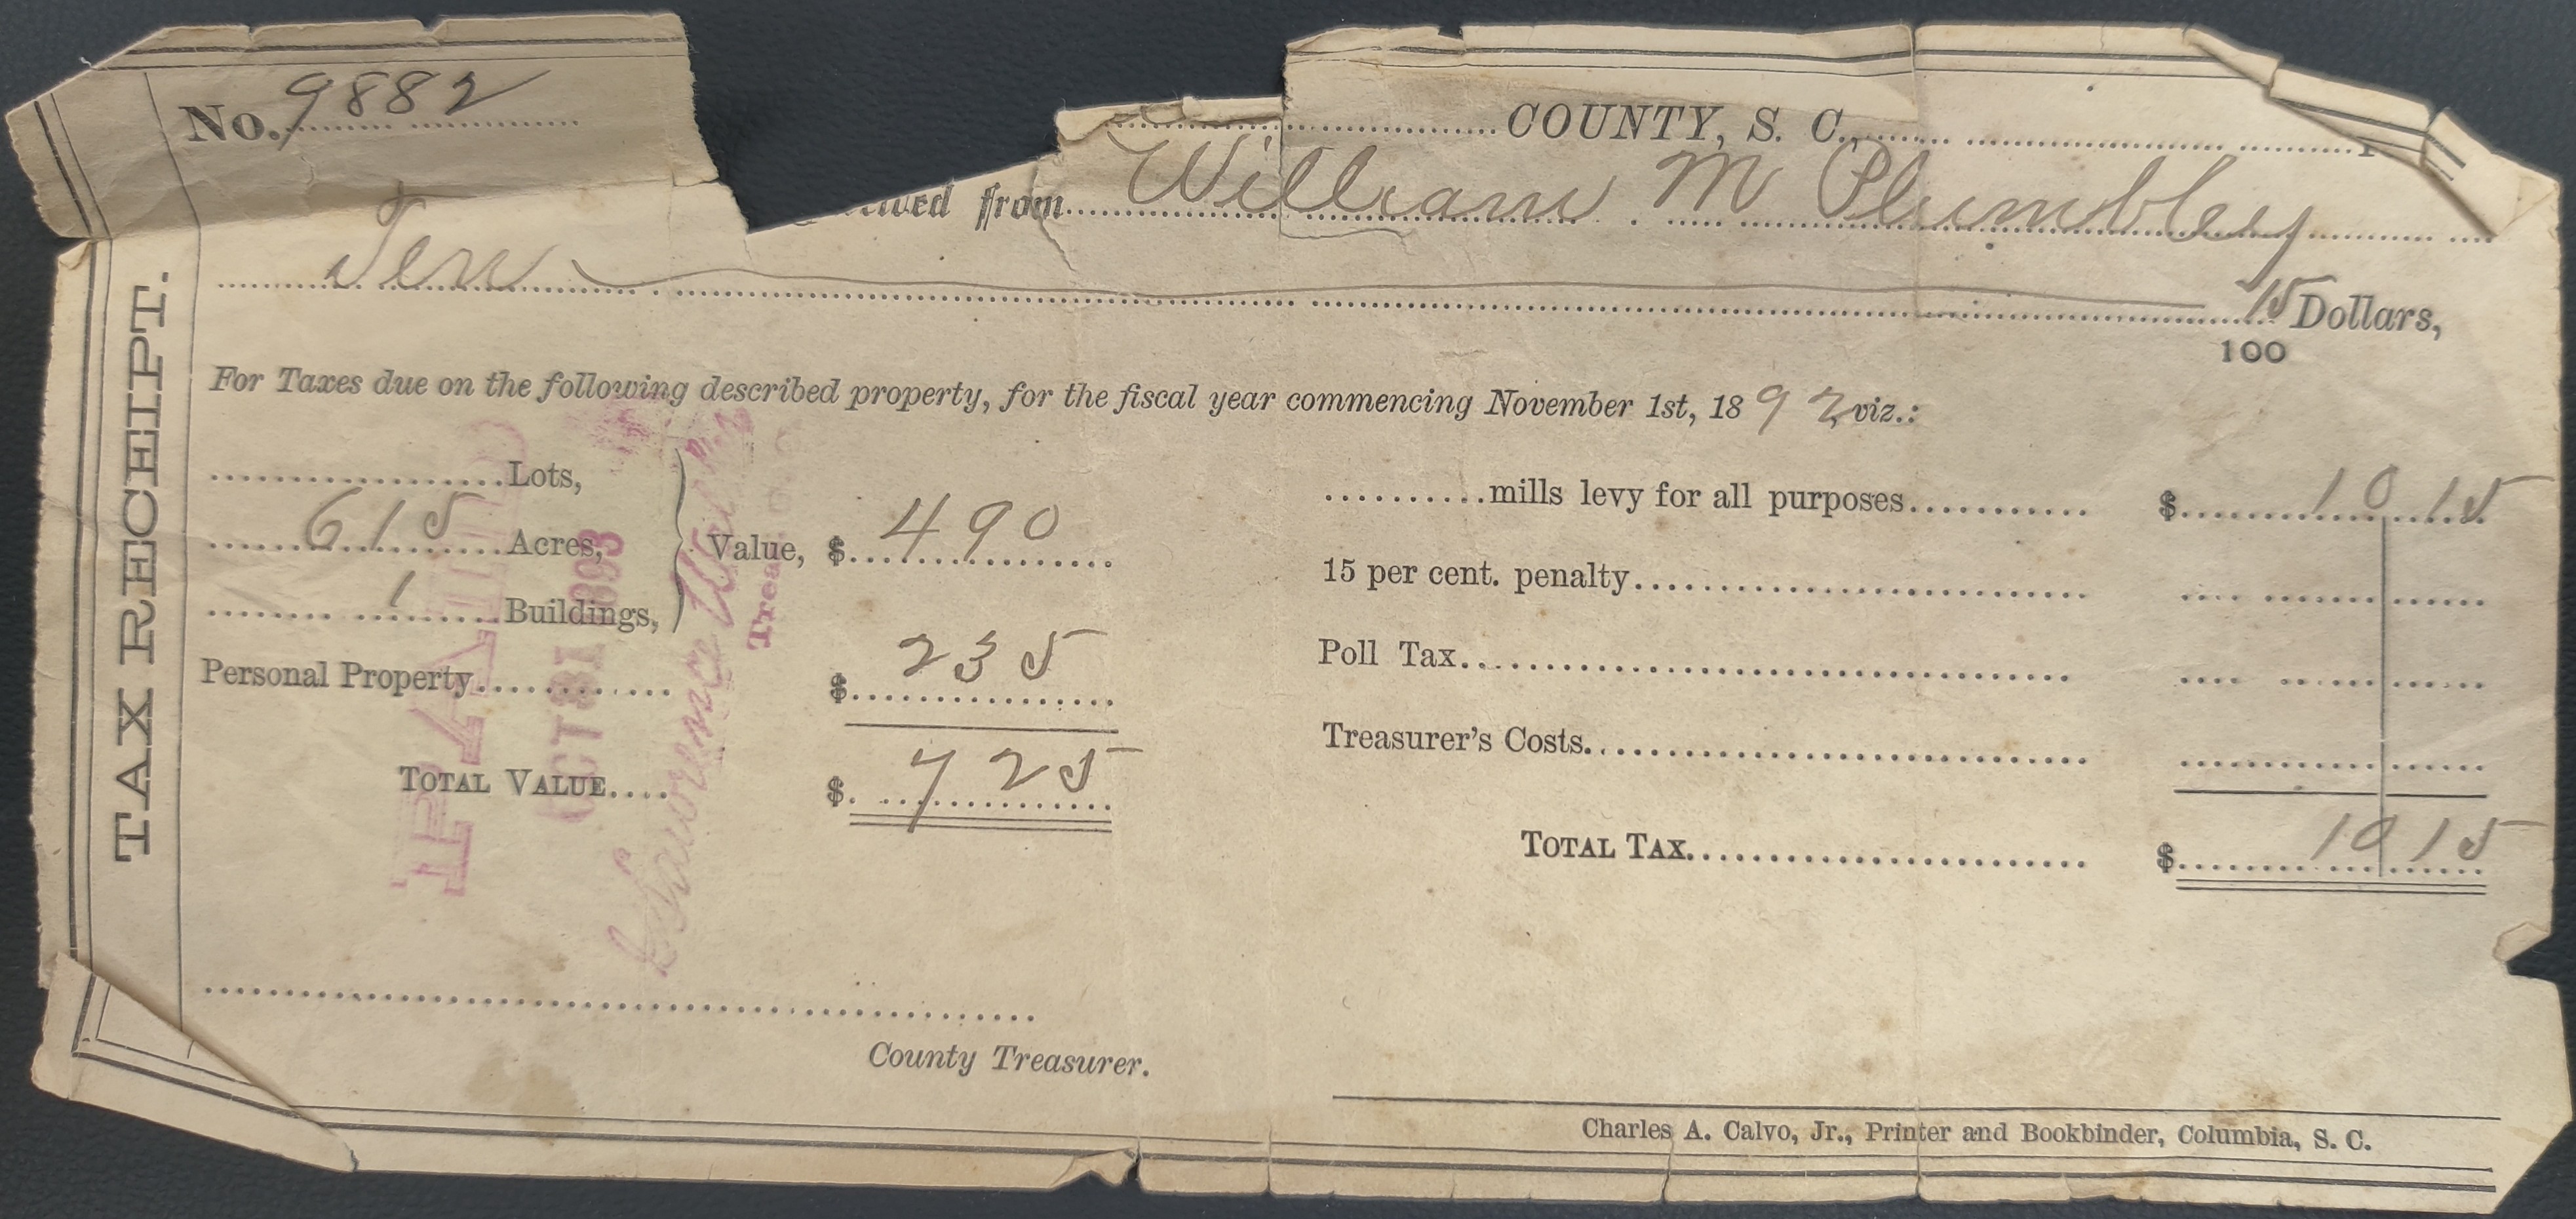 TAX RECEIPT.
No. 9882
COUNTY, S. C.,
from William M Plumbley
Ten 15 Dollars,
100
For Taxes due on the following described property, for the fiscal year commencing November 1st, 1892, viz.:
Lots,
615 Acres,
1 Buildings,
Value, $ 490
Personal Property $ 235
TOTAL VALUE.... $ 725
mills levy for all purposes $ 10 15
15 per cent. penalty
Poll Tax
Treasurer's Costs
TOTAL TAX $ 10 15
PAID
OCT 31 1893
County Treasurer.
Charles A. Calvo, Jr., Printer and Bookbinder, Columbia, S. C.